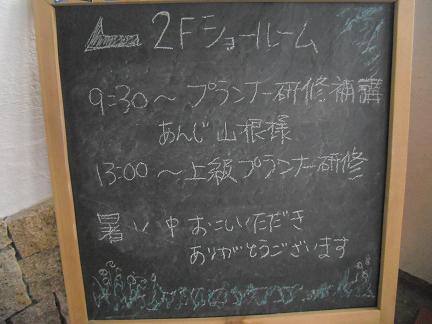 2Fショールーム
9:30～ プランナー研修補講
あんじ山根様
13:00～上級プランナー研修
暑い中おこしいただき
ありがとうございます